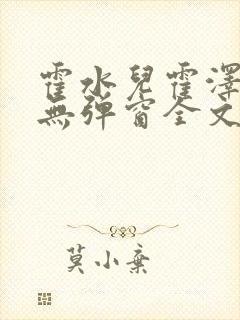 霍水兒霍澤
無彈窗全文
莫小棄